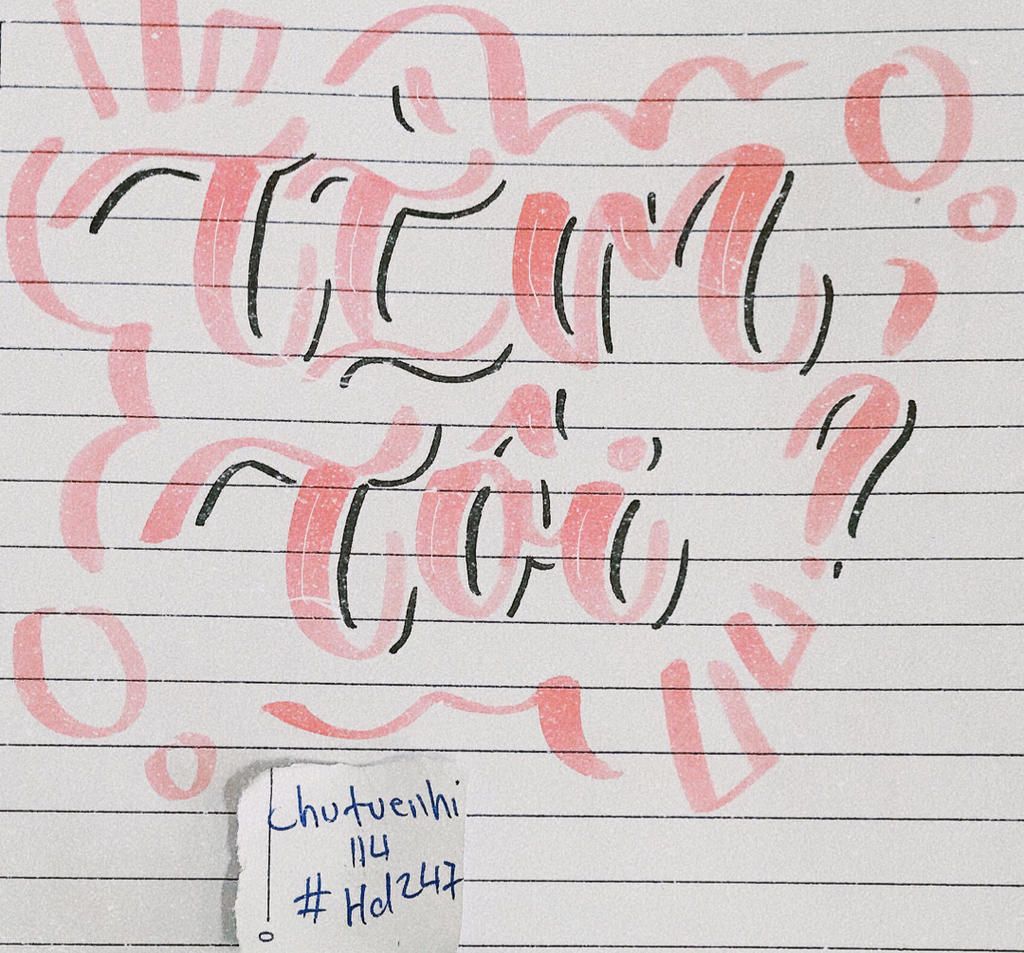 TÌM
TÔi ?
chutuenhi
114
#Hd247